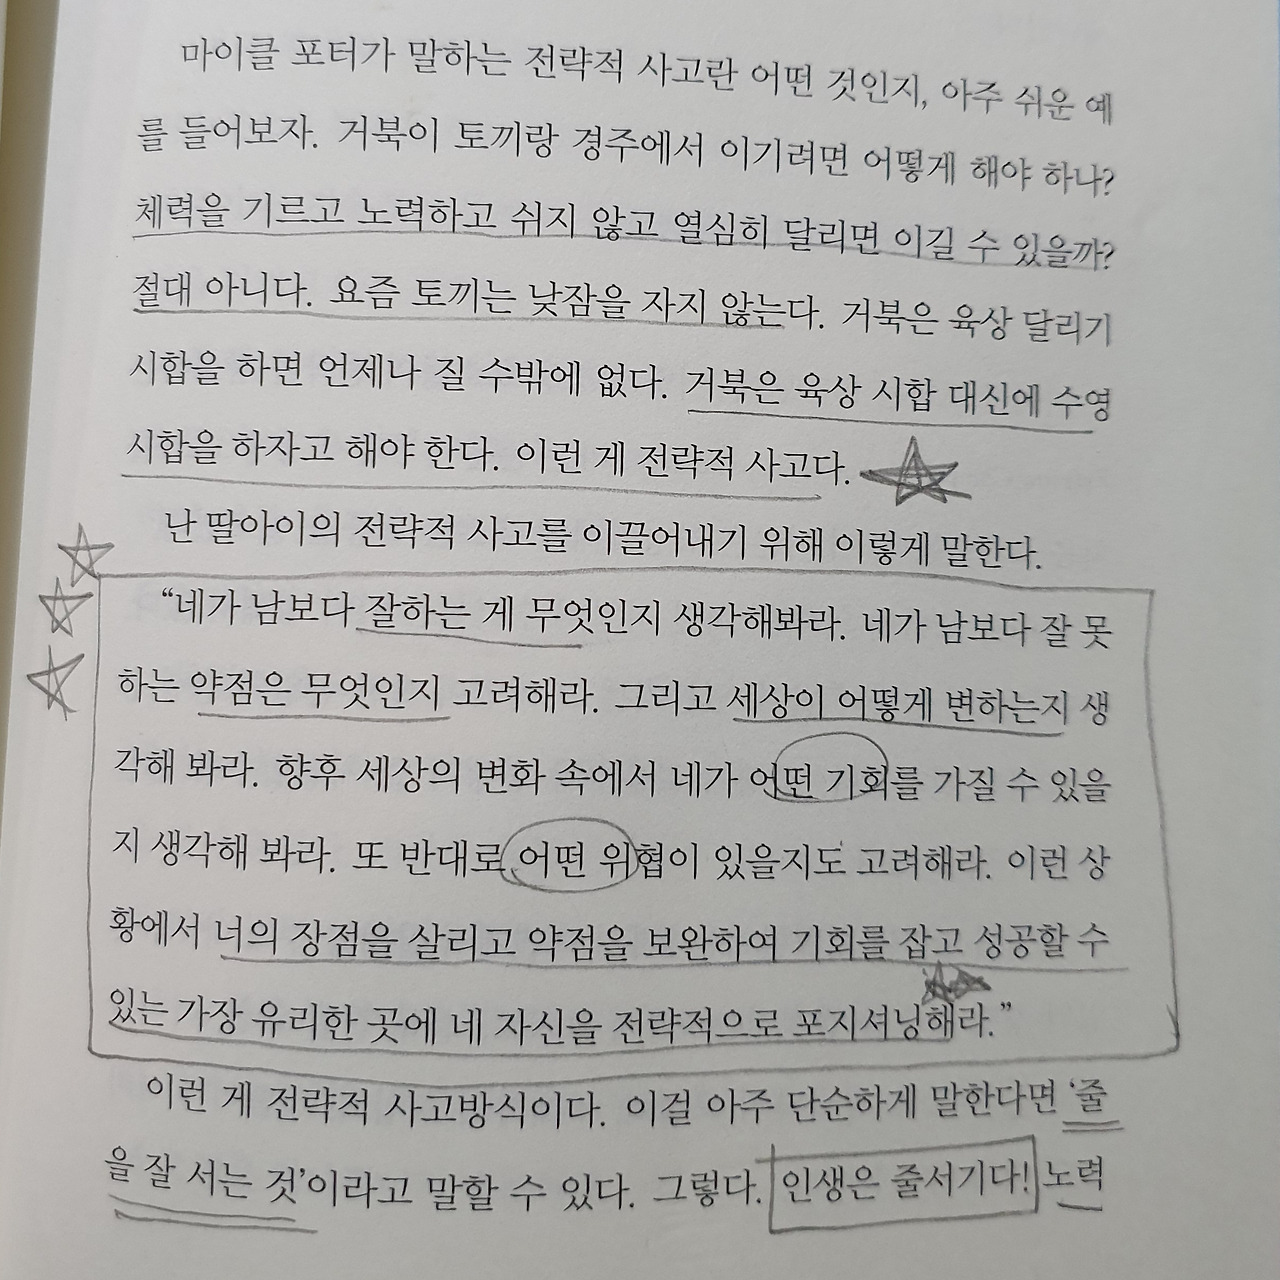 마이클 포터가 말하는 전략적 사고란 어떤 것인지, 아주 쉬운 예
를 들어보자. 거북이 토끼랑 경주에서 이기려면 어떻게 해야 하나?
체력을 기르고 노력하고 쉬지 않고 열심히 달리면 이길 수 있을까?
절대 아니다. 요즘 토끼는 낮잠을 자지 않는다. 거북은 육상 달리기
시합을 하면 언제나 질 수밖에 없다. 거북은 육상 시합 대신에 수영
시합을 하자고 해야 한다. 이런 게 전략적 사고다.
난 딸아이의 전략적 사고를 이끌어내기 위해 이렇게 말한다.
“네가 남보다 잘하는 게 무엇인지 생각해봐라. 네가 남보다 잘 못
하는 약점은 무엇인지 고려해라. 그리고 세상이 어떻게 변하는지 생
각해 봐라. 향후 세상의 변화 속에서 네가 어떤 기회를 가질 수 있을
지 생각해 봐라. 또 반대로 어떤 위협이 있을지도 고려해라. 이런 상
황에서 너의 장점을 살리고 약점을 보완하여 기회를 잡고 성공할 수
있는 가장 유리한 곳에 네 자신을 전략적으로 포지셔닝해라.”
이런 게 전략적 사고방식이다. 이걸 아주 단순하게 말한다면 ‘줄
을 잘 서는 것’이라고 말할 수 있다. 그렇다. 인생은 줄서기다! 노력